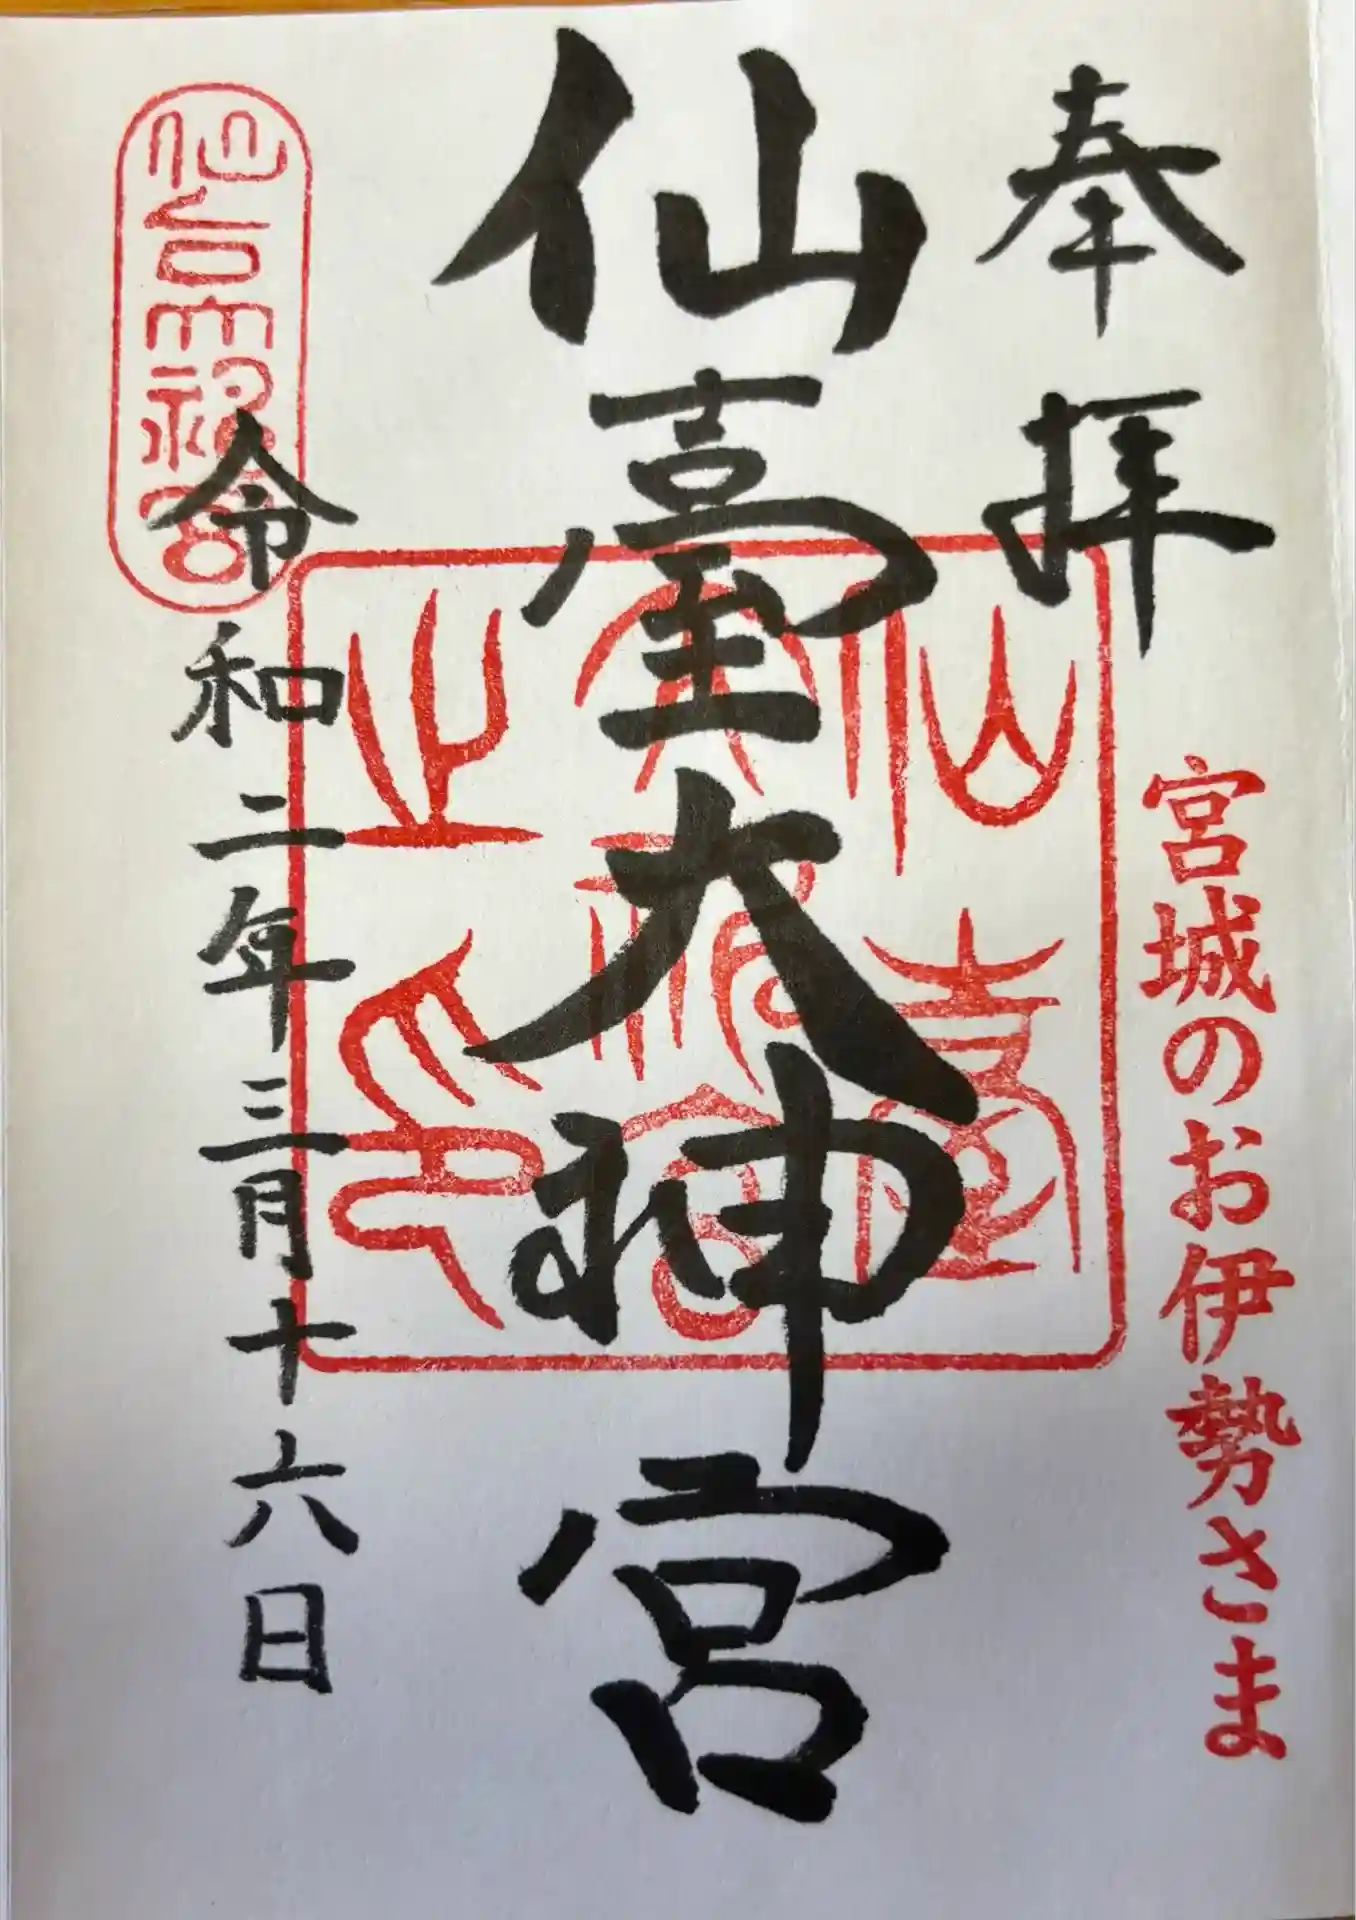 奉拝
宮城のお伊勢さま
仙臺大神宮
仙臺
大神宮
之印
令和二年三月十六日
仙台大神宮